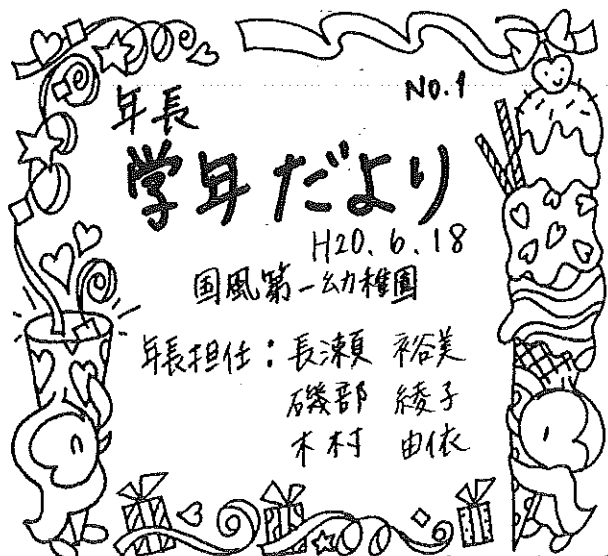 No.1
年長
学年だより
H20.6.18
国風第一幼稚園
年長担任：長瀬 裕美
磯部 綾子
木村 由依